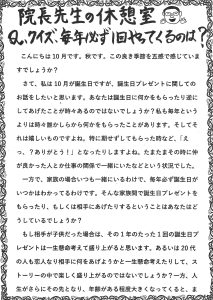 院長先生の休憩室
Q、クイズ、毎年必ず1回やってくるのは?
こんにちは10月です。秋です。この良き季節を五感で感じていま
すでしょうか?
さて、私は10月が誕生日ですが、誕生日プレゼントに関しての
お話をしたいと思います。あなたは誕生日に何かをもらったり逆に
してあげたことが時々あるのではないでしょうか?私も毎年という
よりは時々誰かしらから何かをもらったことがあります。そしてそ
れは嬉しいものですよね。特に期せずしてもらった時など、「え
っ、?ありがとう!」となったりしますよね。たまたまその時に仲
が良かった人とか仕事の関係で一緒にいたなどという状況でした。
一方で、家族の場合いつも一緒にいるわけで、毎年必ず誕生日が
いつかはわかってるわけです。そんな家族間で誕生日プレゼントを
もらったり、もしくは相手にあげたりするということはあなたはど
うしているでしょうか?
もし相手が子供だった場合は、その1年のたった1回の誕生日プ
レゼントは一生懸命考えて盛り上がると思います。あるいは20代
の人も恋人なり相手に何をあげようかと一生懸命考えたりして、ス
トーリーの中で楽しく盛り上がるのではないでしょうか?一方、人
生がさらにその先となり、年齢がある程度大きくなってくると、ま